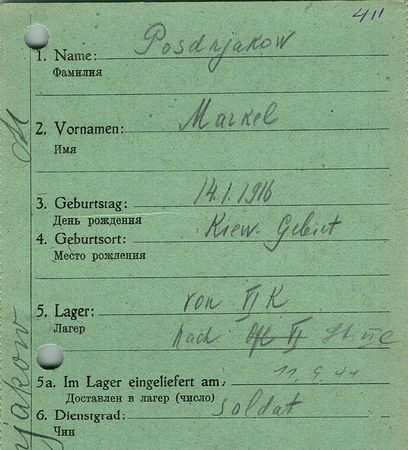 411
1. Name: Posdnjakow
Фамилия
2. Vornamen: Markel
Имя
3. Geburtstag: 14.1.1916
День рождения
4. Geburtsort: Kiew. Gebiet
Место рождения
5. Lager: von VI K
Лагер
nach
5a. Im Lager eingeliefert am:
Доставлен в лагер (число)
6. Dienstgrad: Soldat
Чин